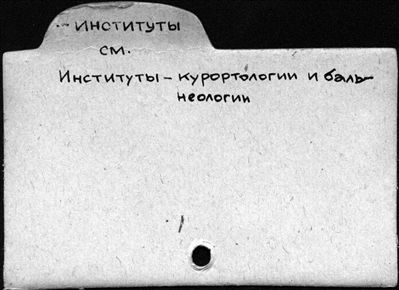 - институты
см.
Институты - курортологии и баль-
неологии